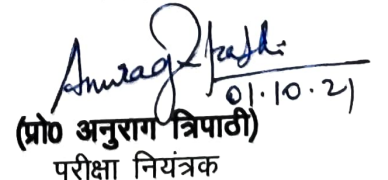 Anurag Tripathi
01.10.21
(प्रो0 अनुराग त्रिपाठी)
परीक्षा नियंत्रक